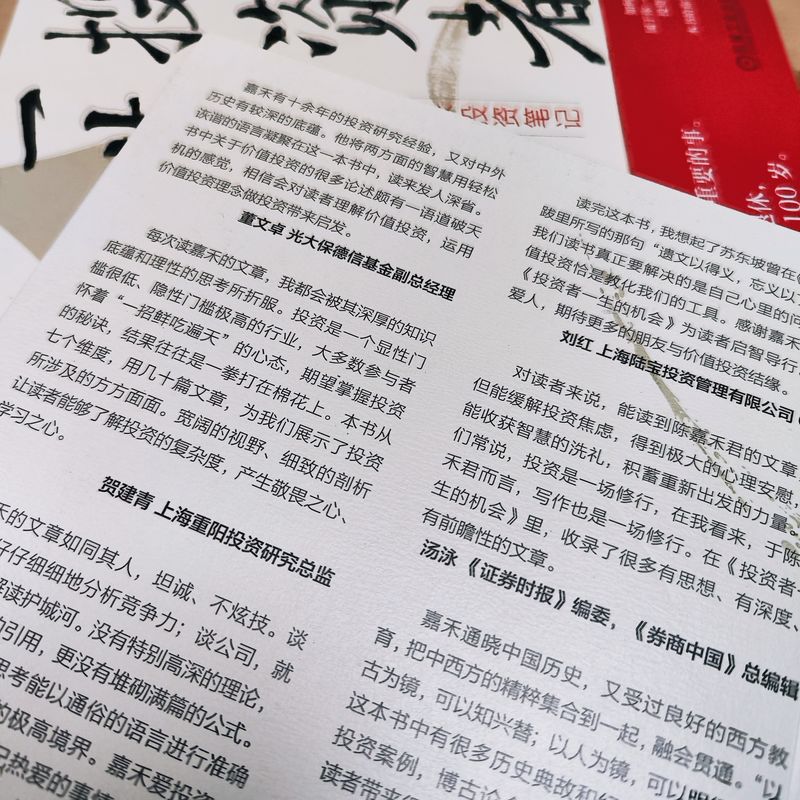 投资者
投资笔记
重要的事。
退休，
100岁。
嘉禾有十余年的投资研究经验，又对中外
历史有较深的底蕴。他将两方面的智慧用轻松
诙谐的语言凝聚在这一本书中，读来发人深省。
书中关于价值投资的很多论述颇有一语道破天
机的感觉，相信会对读者理解价值投资，运用
价值投资理念做投资带来启发。
董文卓 光大保德信基金副总经理
每次读嘉禾的文章，我都会被其深厚的知识
底蕴和理性的思考所折服。投资是一个显性门
槛很低、隐性门槛极高的行业，大多数参与者
怀着“一招鲜吃遍天”的心态，期望掌握投资
的秘诀，结果往往是一拳打在棉花上。本书从
七个维度，用几十篇文章，为我们展示了投资
所涉及的方方面面。宽阔的视野、细致的剖析
让读者能够了解投资的复杂度，产生敬畏之心、
学习之心。
贺建青 上海重阳投资研究总监
天的文章如同其人，坦诚、不炫技。谈
仔仔细细地分析竞争力；谈公司，就
解读护城河。没有特别高深的理论，
的引用，更没有堆砌满篇的公式。
思考能以通俗的语言进行准确
的极高境界。嘉禾爱投资
热爱的事情
读完这本书，我想起了苏东坡曾在
跋里所写的那句“遗文以得义，忘义以
我们读书真正要解决的是自己心里的问
值投资恰是教化我们的工具。感谢嘉禾
《投资者一生的机会》为读者启智导行，
爱人，期待更多的朋友与价值投资结缘。
刘红 上海陆宝投资管理有限公司
对读者来说，能读到陈嘉禾君的文章，
但能缓解投资焦虑，得到极大的心理安慰，
能收获智慧的洗礼，积蓄重新出发的力量。
们常说，投资是一场修行，在我看来，于陈
禾君而言，写作也是一场修行。在《投资者一
生的机会》里，收录了很多有思想、有深度、
有前瞻性的文章。
汤泳 《证券时报》编委，《券商中国》总编辑
嘉禾通晓中国历史，又受过良好的西方教
育，把中西方的精粹集合到一起，融会贯通。“以
古为镜，可以知兴替；以人为镜，可以明
这本书中有很多历史典故和
投资案例，博古论
读者带来